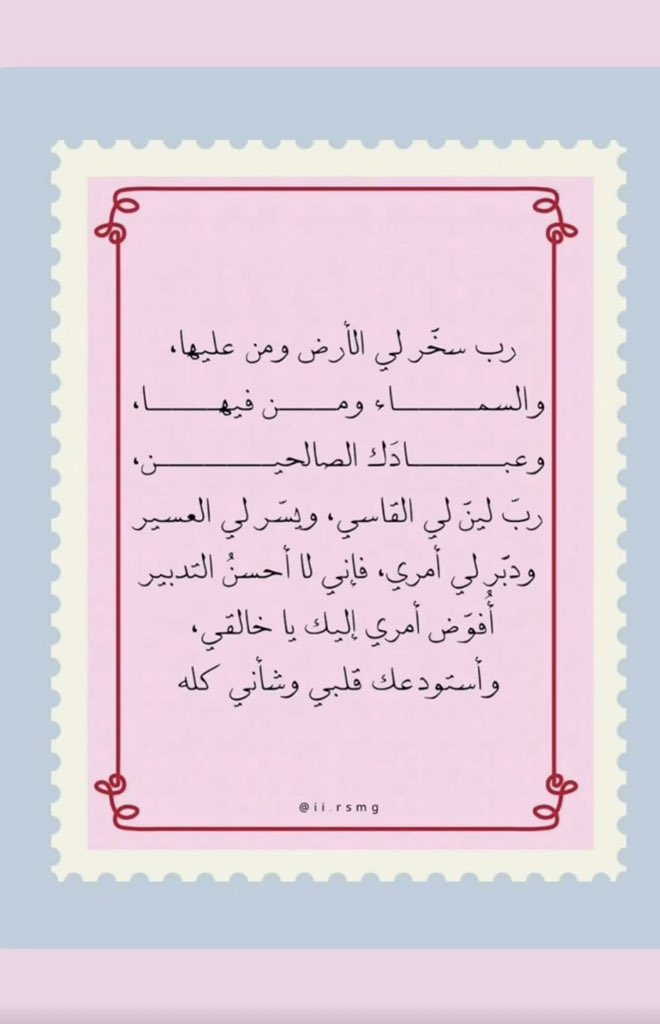 رب سخَر لي الأرض ومن عليها،
والسمـــــــاء ومـــــن فيهـــــــا،
وعبـــــــــادَك الصالحيـــــــــــن،
ربَ لينَ لي القاسي، ويسّر لي العسير
ودبّر لي أمري، فإني لا أحسنُ التدبير
أُفوَض أمري إليك يا خالقي،
وأستودعك قلبي وشأني كله
@ii.rsmg